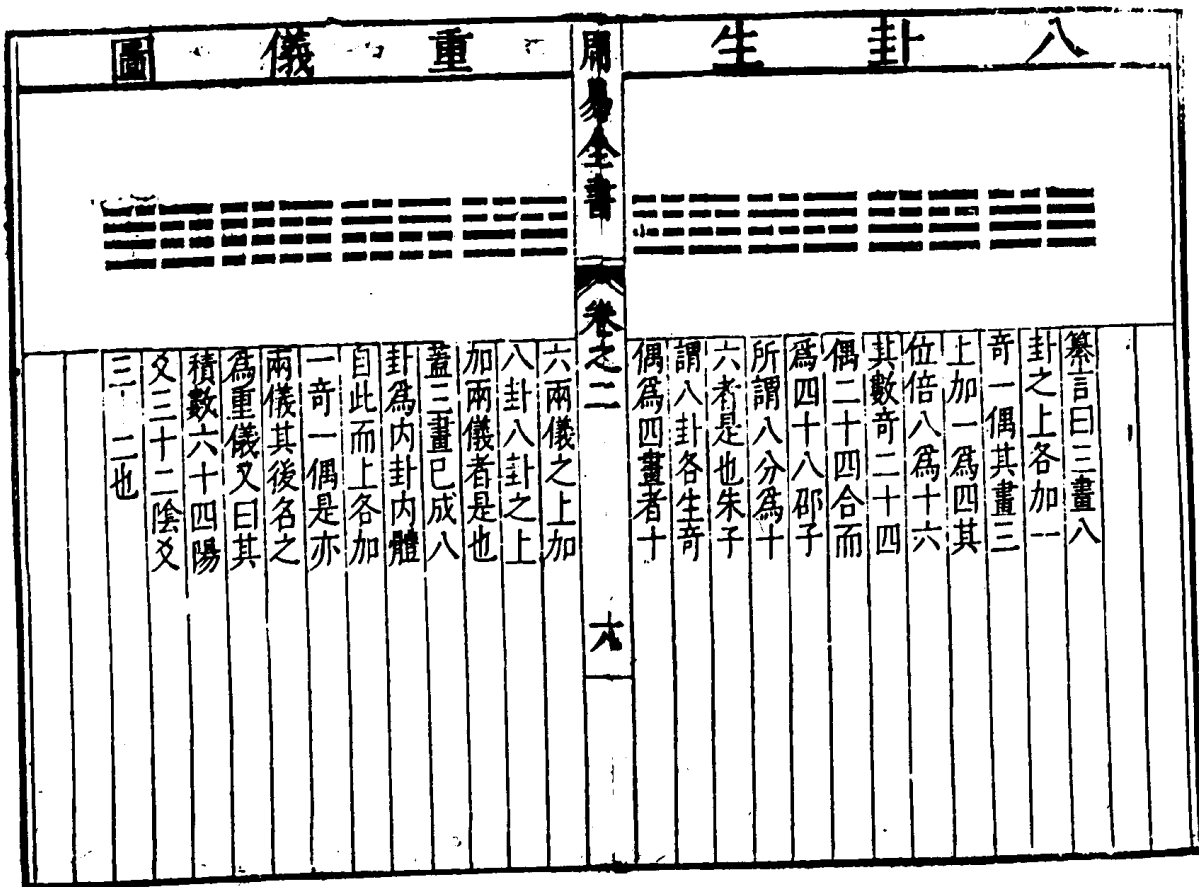 八卦生重儀圖
纂言曰三畫八
卦之上各加一
奇一偶其畫三
上加一爲四其
位倍八爲十六
其數奇二十四
偶二十四合而
爲四十八邵子
所謂八分爲十
六者是也朱子
謂八卦各生奇
偶爲四畫者十
周易全書 卷之二
六兩儀之上加
八卦八卦之上
加兩儀者是也
蓋三畫已成八
卦爲内卦内體
自此而上各加
一奇一偶是亦
兩儀其後名之
爲重儀又曰其
積數六十四陽
爻三十二陰爻
三 二也